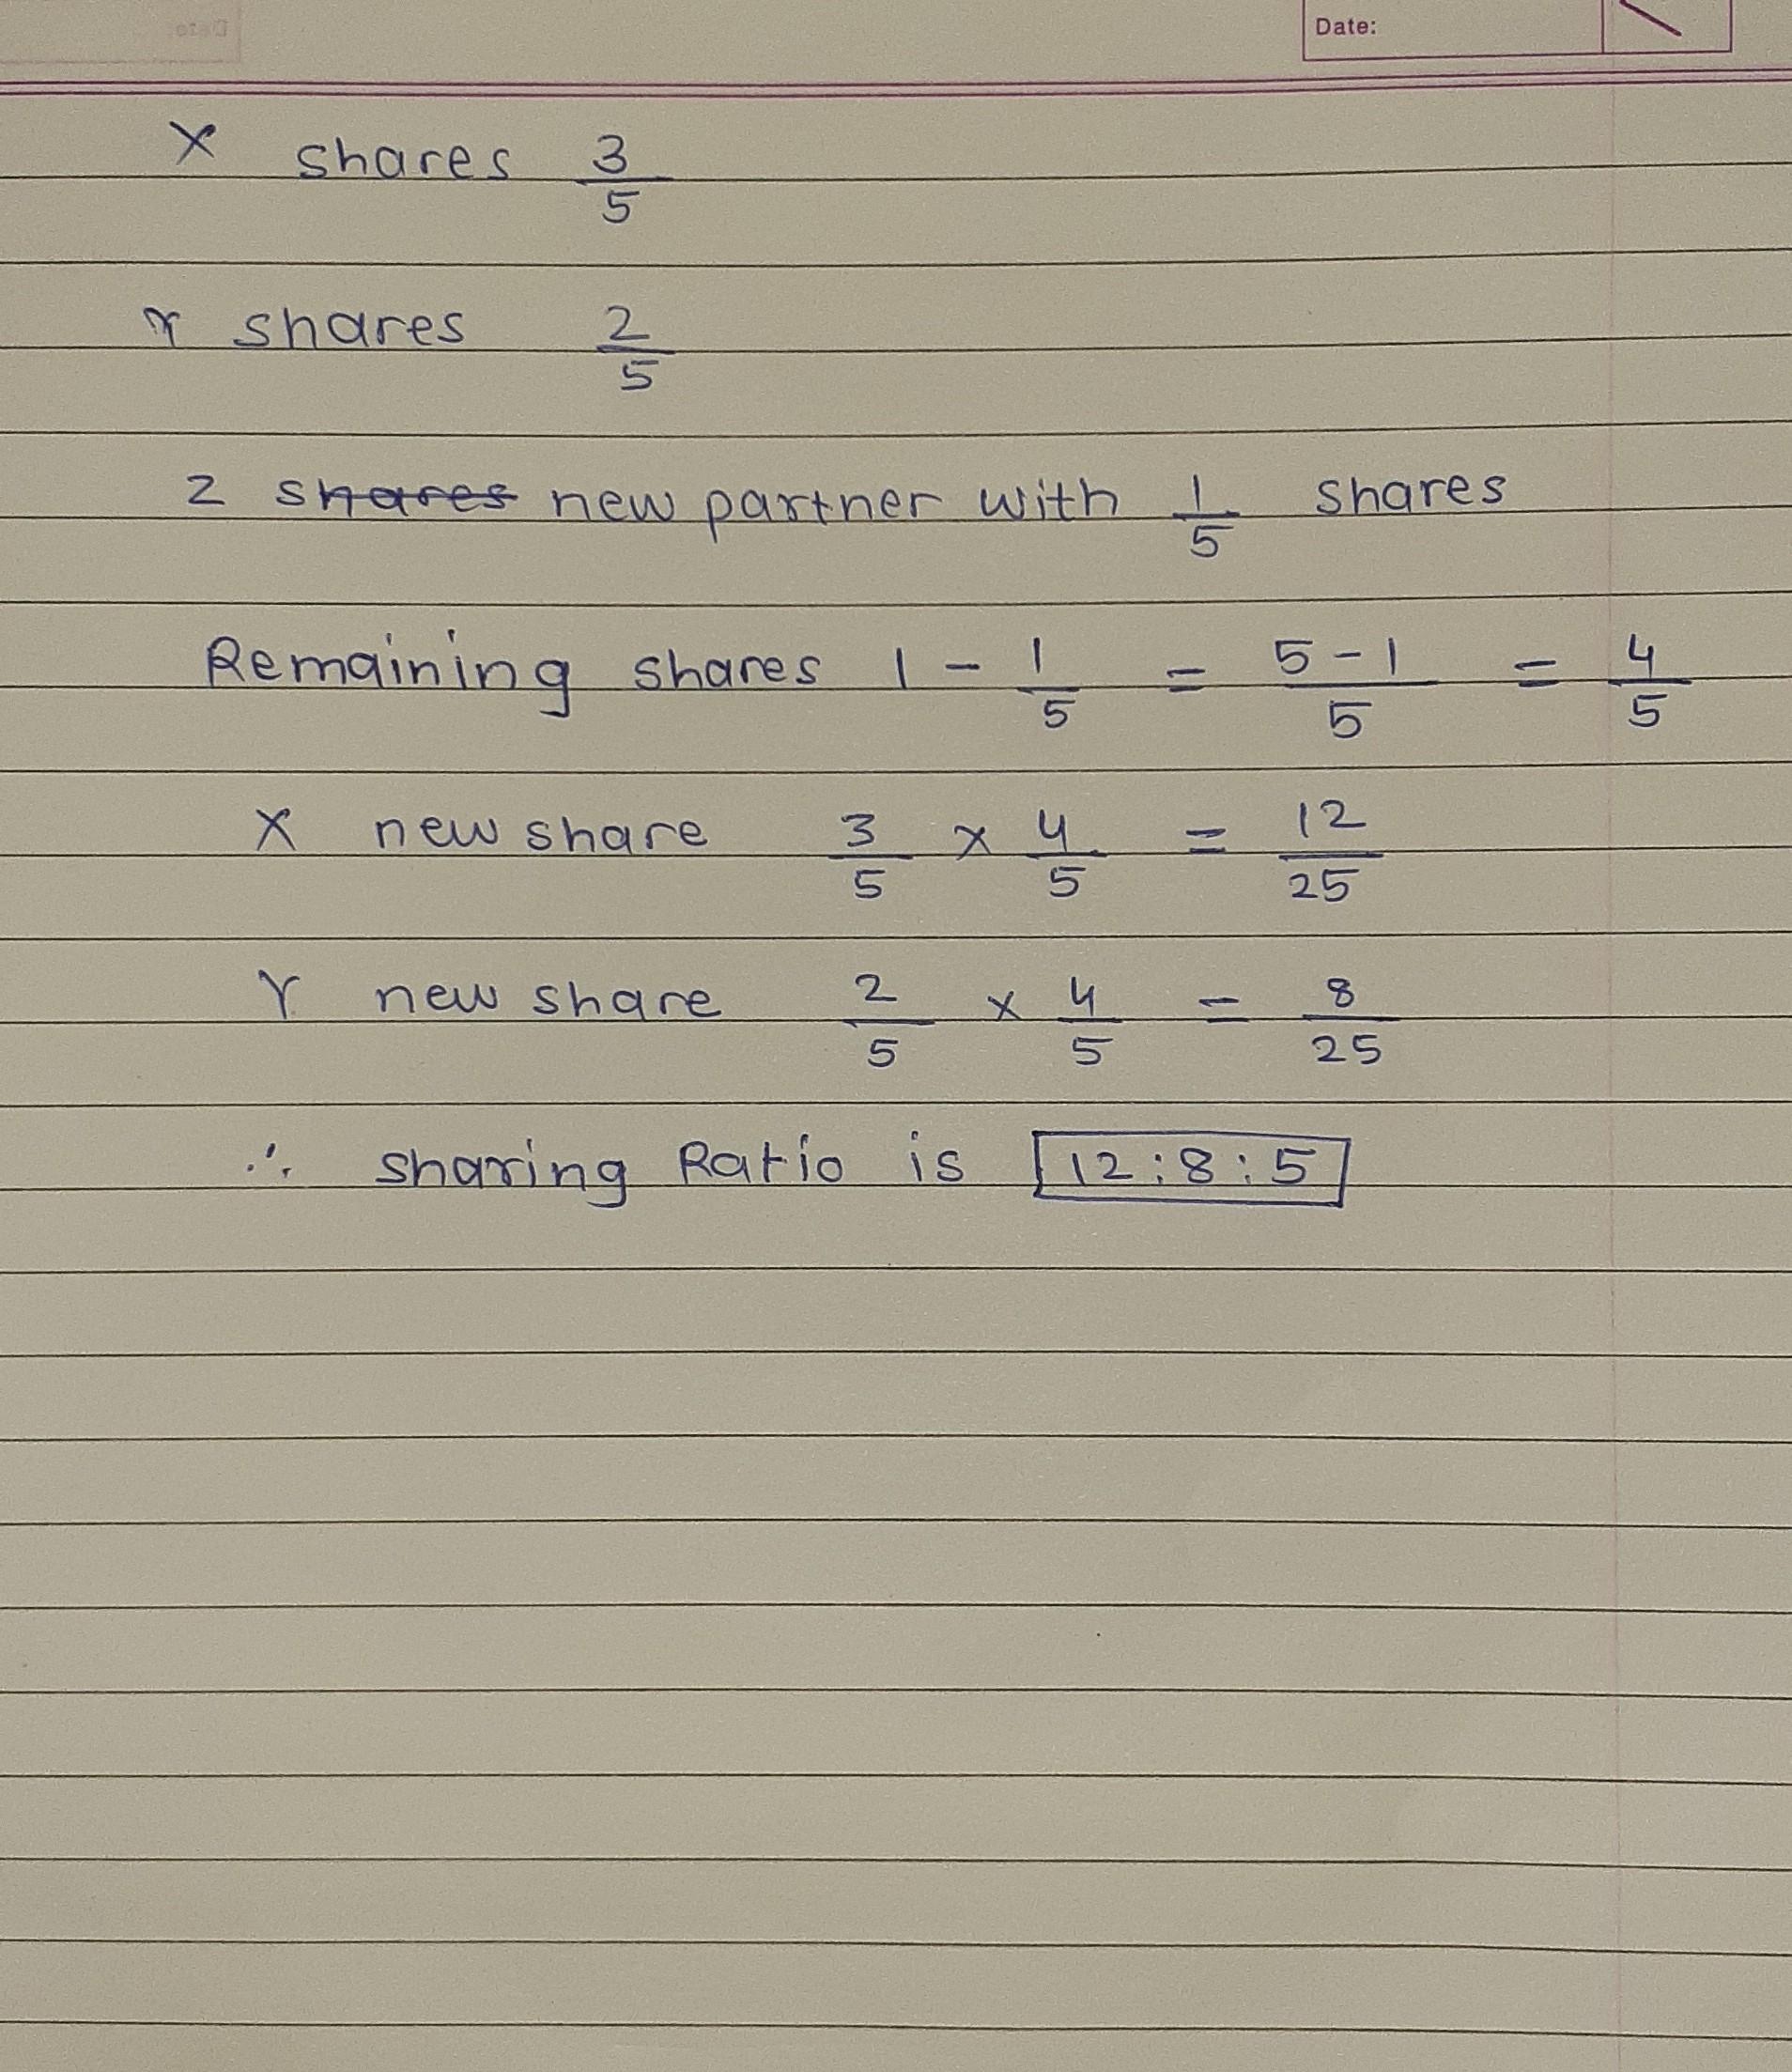 Date:
X shares 3/5
Y shares 2/5
Z ~~shares~~ new partner with 1/5 shares
Remaining shares 1 - 1/5 = 5-1/5 = 4/5
X new share 3/5 × 4/5 = 12/25
Y new share 2/5 × 4/5 = 8/25
∴ sharing Ratio is 12:8:5